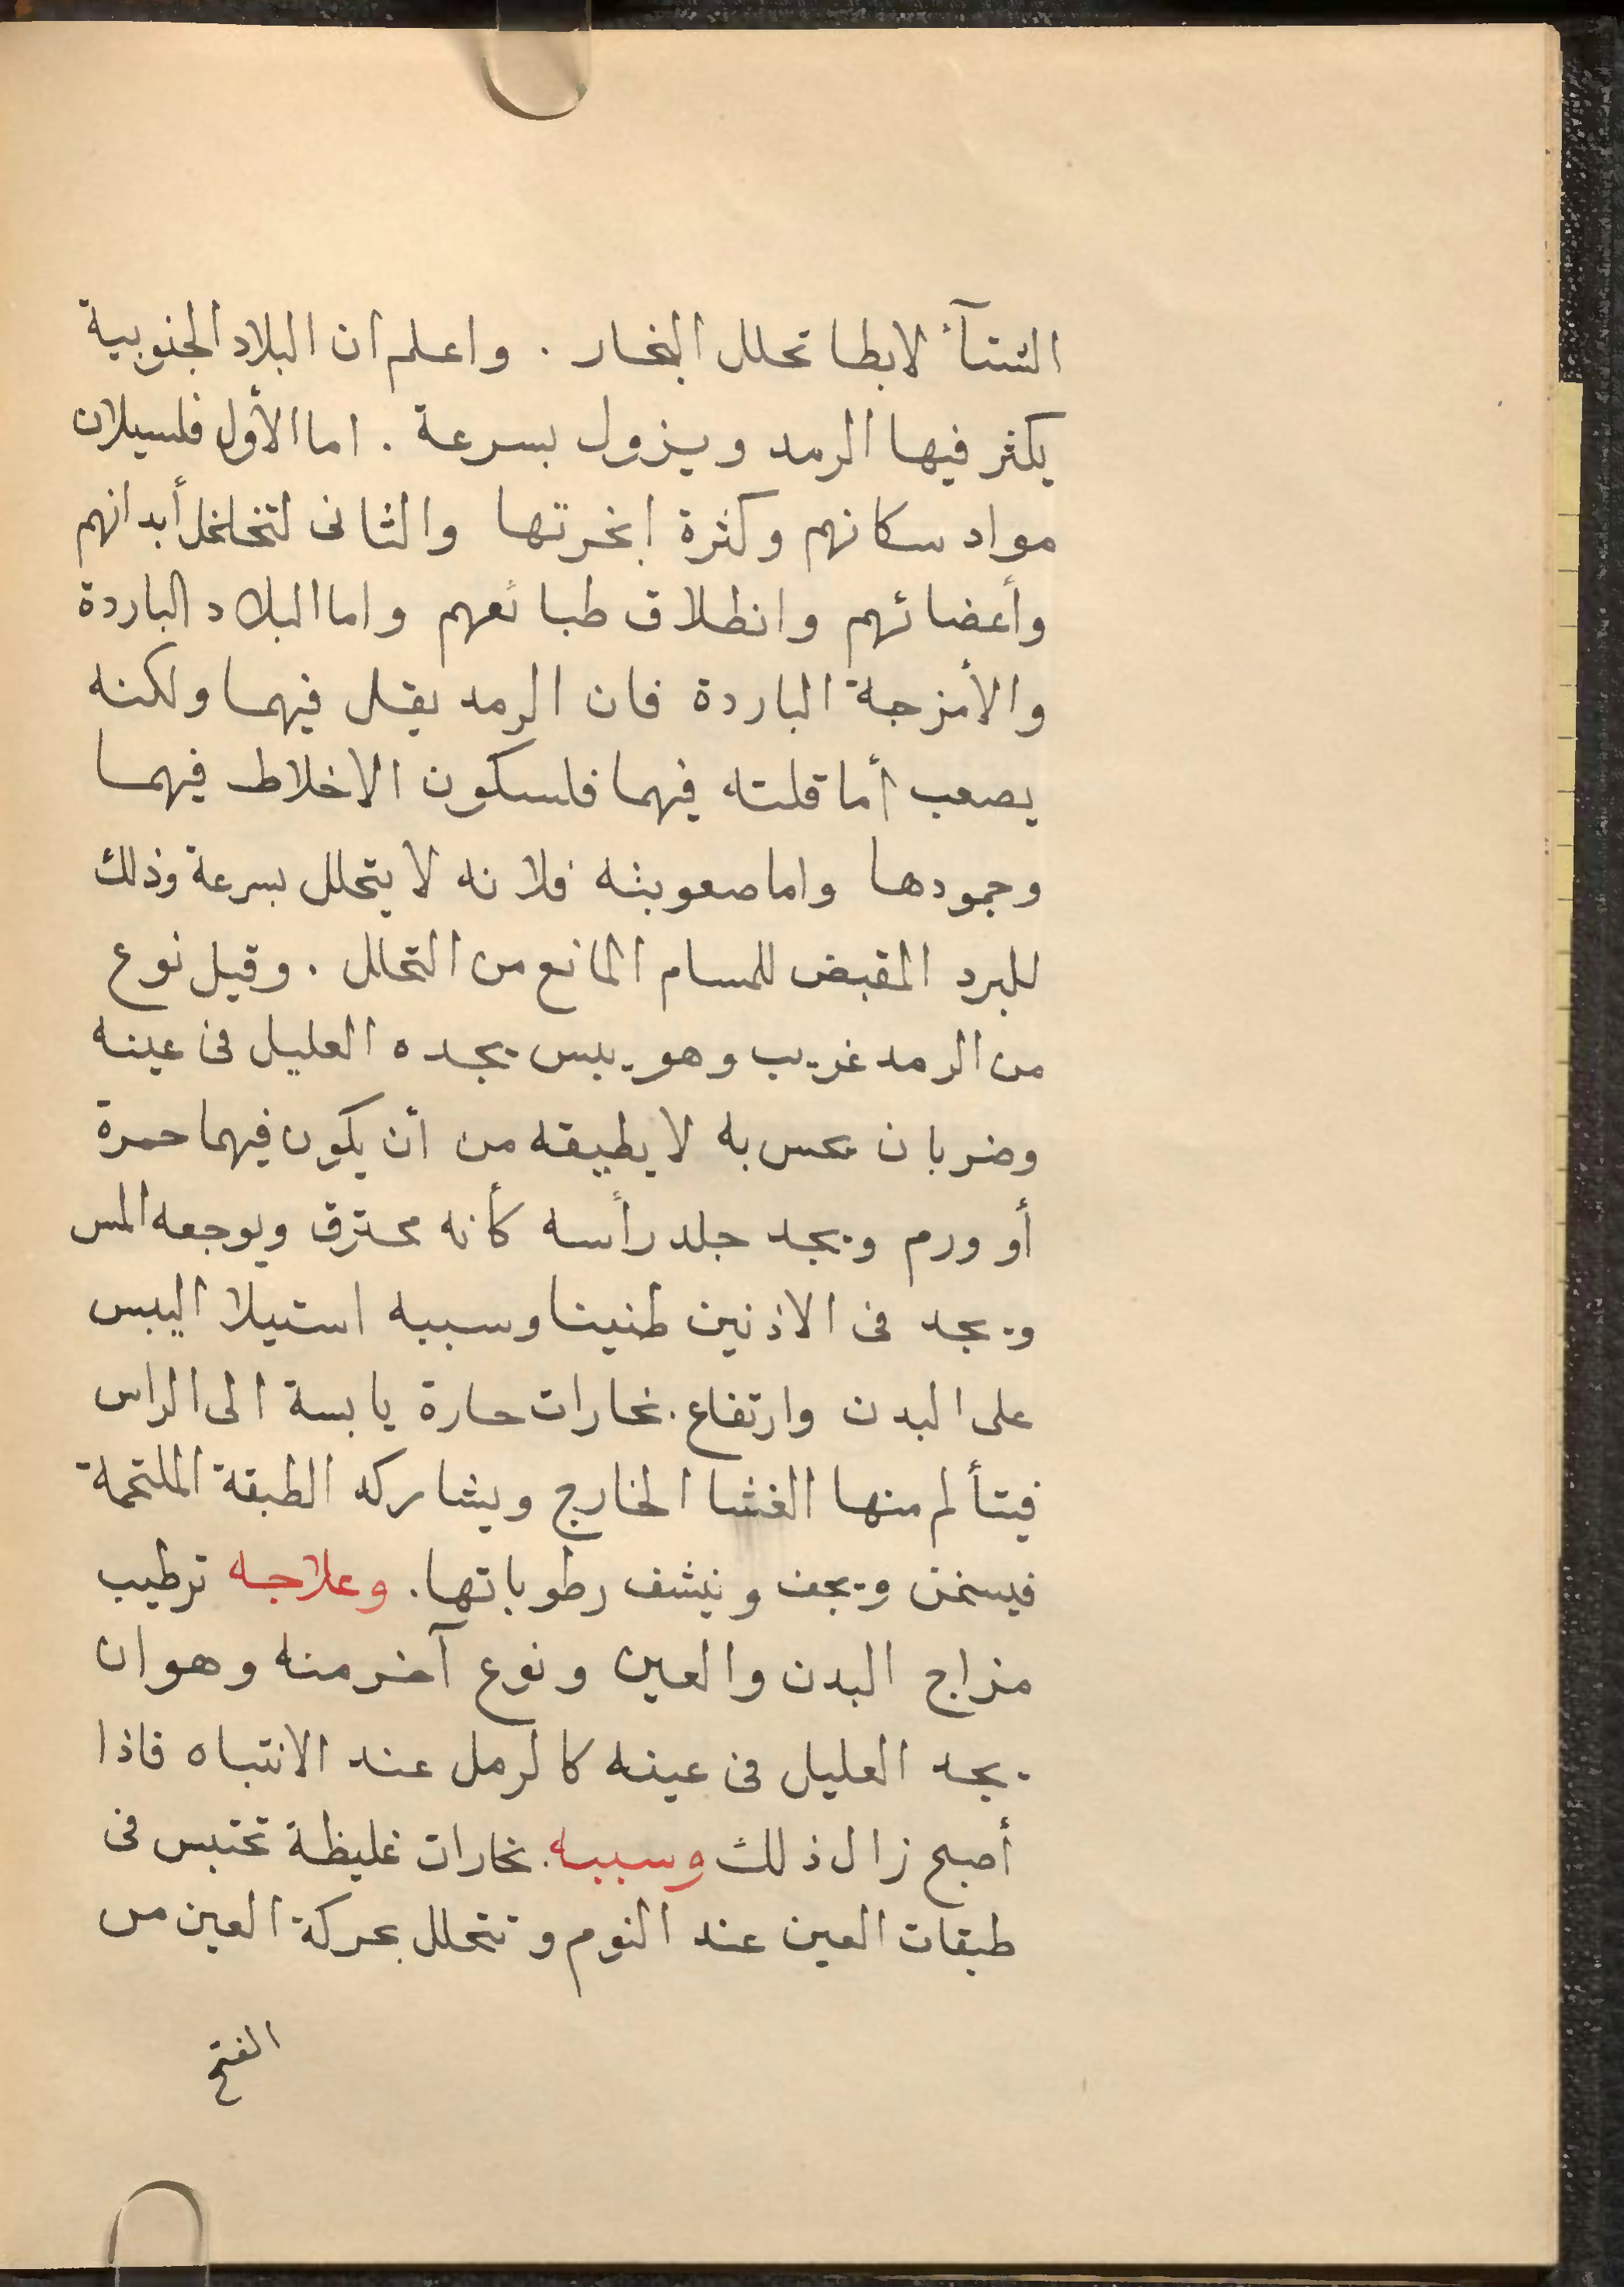 الشتآء لابطا تحلل البخار . واعلم ان البلاد الجنوبية
يكثر فيها الرمد ويزول بسرعة . اما الأول فلسيلان
مواد سكانهم وكثرة ابخرتها والثانى لتخلخل أبدانهم
وأعضائهم وانطلاق طبائعهم واما البلاد الباردة
والأمزجة الباردة فان الرمد يقل فيهما ولكنه
يصعب أما قلته فيهما فلسكون الاخلاط فيهما
وجمودها واما صعوبته فلانه لا يتحلل بسرعة وذلك
للبرد المقبض للمسام المانع من التحلل . وقيل نوع
من الرمد غريب وهو يبس يجده العليل فى عينه
وضربان يحس به لا يطيقه من أن يكون فيهما حمرة
أو ورم ويجد جلد رأسه كأنه محترق ويوجعه المس
ويجد فى الاذنين طنينا وسببه استيلا اليبس
على البدن وارتفاع بخارات حارة يابسة الى الراس
فيتألم منها الغشا الخارج ويشاركه الطبقة الملتحمة
فيسخن ويجف وينشف رطوباتها . وعلاجه ترطيب
مزاج البدن والعين ونوع آخر منه وهو ان
يجد العليل فى عينه كالرمل عند الانتباه فاذا
أصبح زال ذلك وسببه بخارات غليظة تحتبس فى
طبقات العين عند النوم وتتحلل بحركة العين من
الفتح